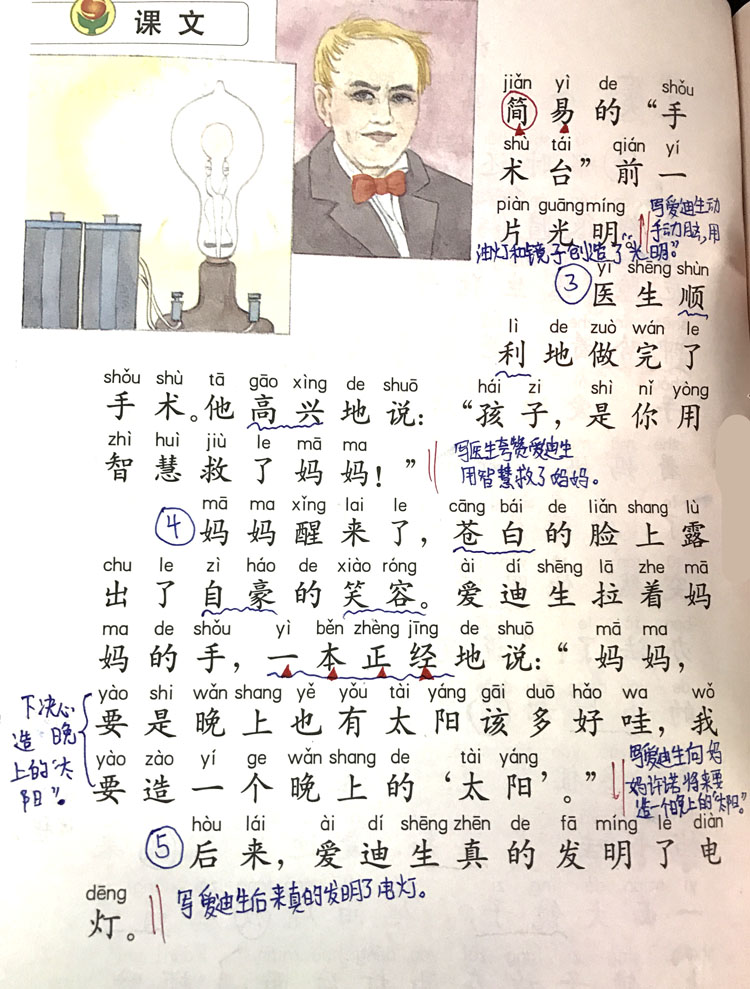 课文
jiǎn yì de shǒu
简易的“手
shù tái qián yí
术台”前一
piàn guāng míng
片光明。
写爱迪生动
手动脑,用
油灯和镜子创造了“光明”。
yī shēng shùn
③医生顺
lì de zuò wán le
利地做完了
shǒu shù tā gāo xìng de shuō hái zi shì nǐ yòng
手术。他高兴地说:“孩子,是你用
zhì huì jiù le mā ma
智慧救了妈妈!”
写医生夸赞爱迪生
用智慧救了妈妈。
mā ma xǐng lai le cāng bái de liǎn shang lù
④妈妈醒来了,苍白的脸上露
chu le zì háo de xiào róng ài dí shēng lā zhe mā
出了自豪的笑容。爱迪生拉着妈
ma de shǒu yì běn zhèng jīng de shuō mā ma
妈的手,一本正经地说:“妈妈,
yào shi wǎn shang yě yǒu tài yáng gāi duō hǎo wa wǒ
要是晚上也有太阳该多好哇,我
yào zào yí ge wǎn shang de tài yáng
要造一个晚上的‘太阳’。”
下决心
造晚
上的“太
阳”。
写爱迪生向妈
妈许诺将来要
造一个晚上的“太阳”。
hòu lái ài dí shēng zhēn de fā míng le diàn
⑤后来,爱迪生真的发明了电
dēng
灯。
写爱迪生后来真的发明了电灯。